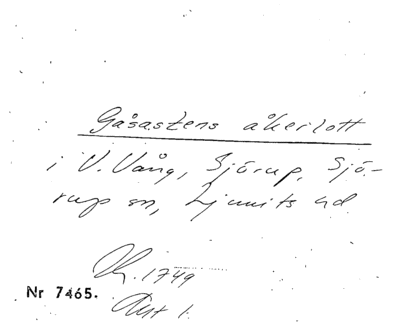 Gåsastens åkerlott
i V. Vång, Sjörup, Sjö-
rup sn, Ljunits hd
1749
Nr 7465.
Akt 1.